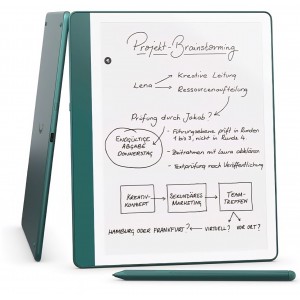 Projekt-Brainstorming
Lena
Kreative Leitung
Ressourcenaufteilung
Prüfung durch Jakob?
ENDGÜLTIGE
ABGABE
DONNERSTAG
- Führungsebene prüft in Runden
1 bis 3, nicht in Runde 4
- Zeitrahmen mit Laura abklären
- Textprüfung nach Veröffentlichung
KREATIV-
KONZEPT
SEKUNDÄRES
MARKETING
TEAM-
TREFFEN
HAMBURG ODER FRANKFURT?
VIRTUELL?
VOR ORT?